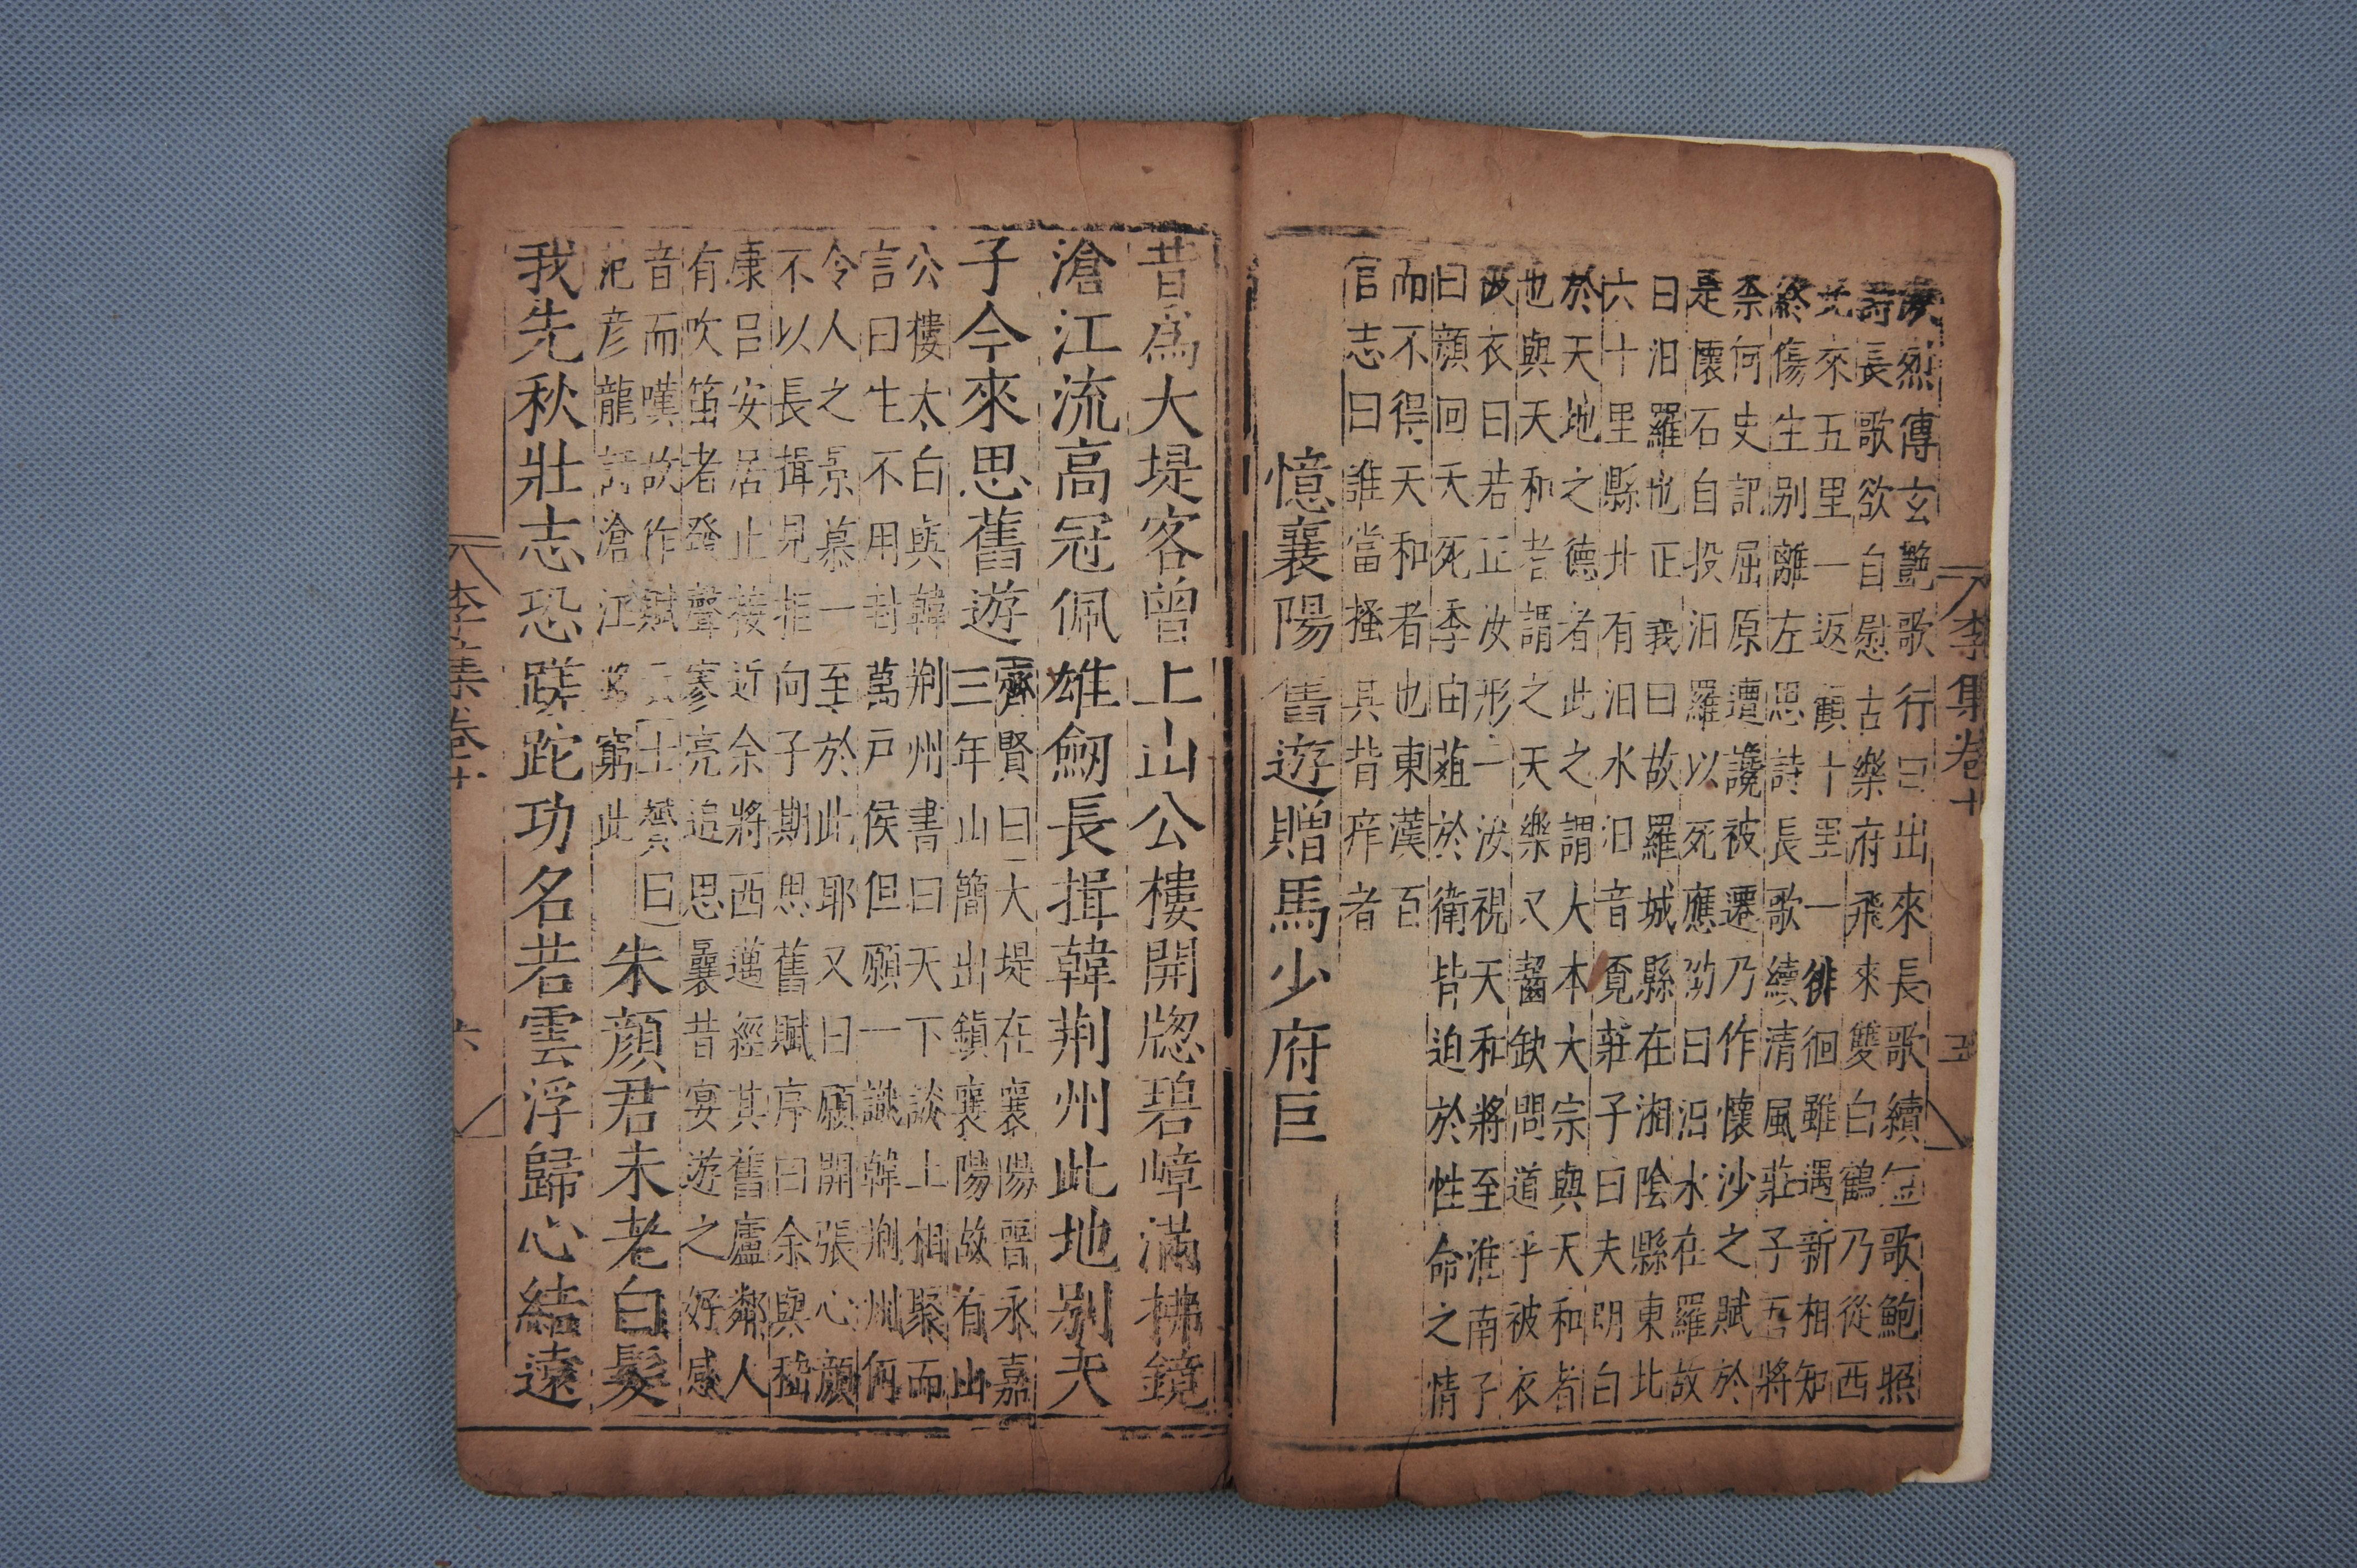 李集卷十 五
烈傳玄艷歌行曰出來長歌續短歌鮑照
詩長歌欲自慰古樂府飛來雙白鶴乃從西
北來五里一返顧十里一徘徊雖遇新相知
終傷生别離左思詩長歌續清風莊子吾將
柰何史記屈原遭讒被遷乃作懷沙之賦於
是懷石自投汨羅以死應劭曰汨水在羅故
曰汨羅也正義曰故羅城縣在湘陰縣東北
六十里縣北有汨水汨音覓莊子曰夫明白
於天地之德者此之謂大本大宗與天和者
也與天和者謂之天樂又齧缺問道乎被衣
被衣曰若正汝形一汝視天和將至淮南子
曰顏回夭死季由葅於衛皆迫於性命之情
而不得天和者也東漢百
官志曰誰當搔其背痒者
憶襄陽舊遊贈馬少府巨
昔為大堤客曾上山公樓開牕碧嶂滿拂鏡
滄江流高冠佩雄劒長揖韓荆州此地别夫
子今來思舊遊
齊賢曰大堤在襄陽晉永嘉
三年山簡出鎮襄陽故有山
公樓太白與韓荆州書曰天下談士相聚而
言曰生不用封萬戶侯但願一識韓荆州何
令人之景慕一至於此耶又曰願開張心顏
不以長揖見拒向子期思舊賦序曰余與嵇
康吕安居止接近余將西邁經其舊廬鄰人
有吹笛者發聲寥亮追思曩昔宴遊之好感
音而嘆故作賦云士贇曰
范彦龍詩滄江路窮此
朱顏君未老白髮
我先秋壯志恐蹉跎功名若雲浮歸心結遠
李集卷十 六